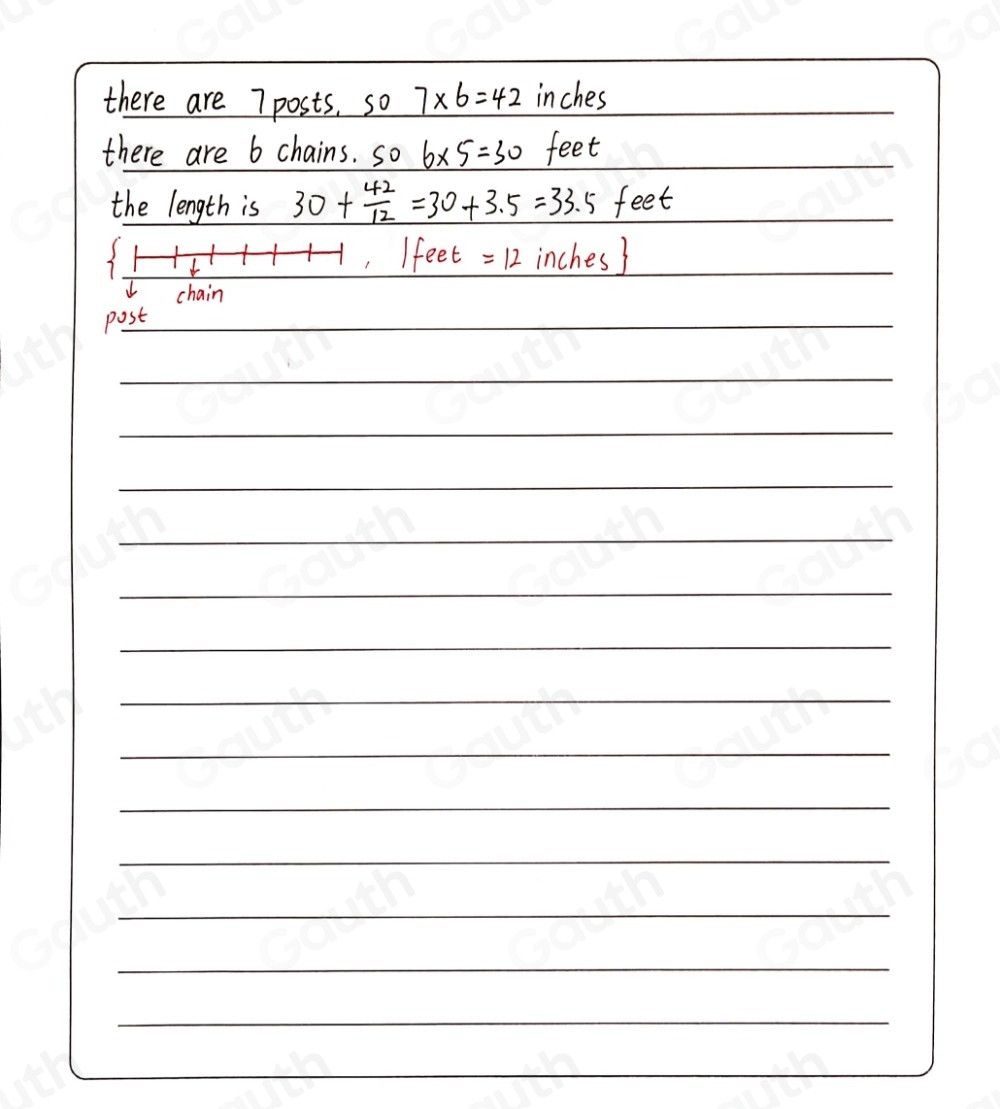 there are 7 posts, so 7×6=42 inches
there are 6 chains. so 6×5=30 feet
the length is 30 + 42/12 =30+3.5 =33.5 feet
{ , 1feet = 12 inches}
chain
post